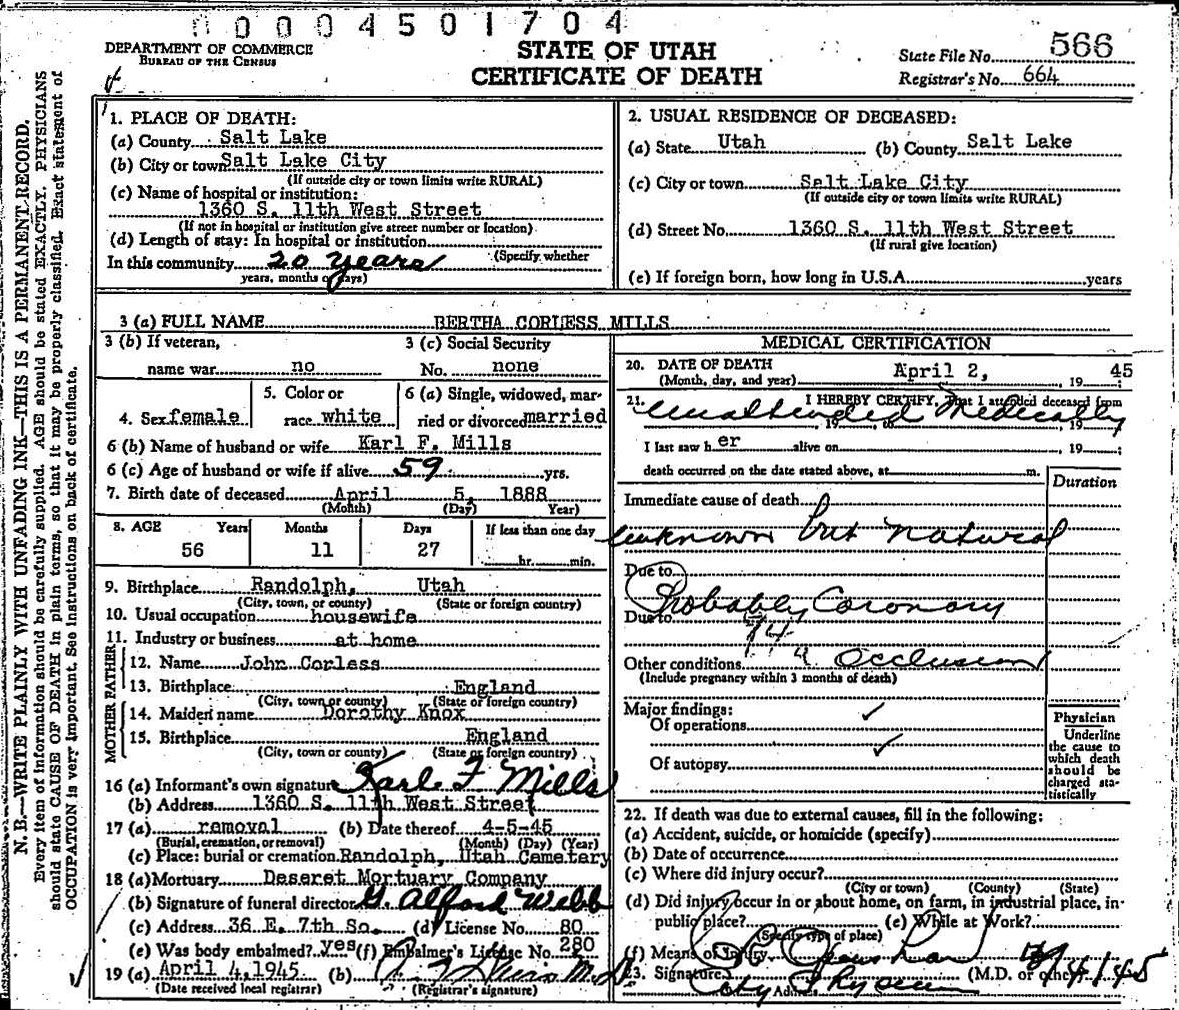 0004501704
DEPARTMENT OF COMMERCE
BUREAU OF THE CENSUS
STATE OF UTAH
CERTIFICATE OF DEATH
State File No. 566
Registrar's No. 664
N. B.—WRITE PLAINLY WITH UNFADING INK—THIS IS A PERMANENT RECORD.
Every item of information should be carefully supplied. AGE should be stated EXACTLY. PHYSICIANS
should state CAUSE OF DEATH in plain terms, so that it may be properly classified. Exact statement of
OCCUPATION is very important. See instructions on back of certificate.
1. PLACE OF DEATH:
(a) County Salt Lake
(b) City or town Salt Lake City
(If outside city or town limits write RURAL)
(c) Name of hospital or institution:
1360 S. 11th West Street
(If not in hospital or institution give street number or location)
(d) Length of stay: In hospital or institution
In this community 20 years (Specify whether
years, months or days)
2. USUAL RESIDENCE OF DECEASED:
(a) State Utah (b) County Salt Lake
(c) City or town Salt Lake City
(If outside city or town limits write RURAL)
(d) Street No. 1360 S. 11th West Street
(If rural give location)
(e) If foreign born, how long in U.S.A. years
3 (a) FULL NAME BERTHA CORLESS MILLS
3 (b) If veteran, 3 (c) Social Security
name war no No. none
4. Sex female 5. Color or
race white 6 (a) Single, widowed, mar-
ried or divorced married
6 (b) Name of husband or wife Karl F. Mills
6 (c) Age of husband or wife if alive 59 yrs.
7. Birth date of deceased April 5, 1888
(Month) (Day) Year)
8. AGE Years Months Days If less than one day
56 11 27 hr. min.
9. Birthplace Randolph, Utah
(City, town, or county) (State or foreign country)
10. Usual occupation housewife
11. Industry or business at home
FATHER
12. Name John Corless
13. Birthplace England
(City, town or county) (State or foreign country)
MOTHER
14. Maiden name Dorothy Knox
15. Birthplace England
(City, town or county) (State or foreign country)
16 (a) Informant's own signature Karl F Mills
(b) Address 1360 S. 11th West Street
17 (a) removal (b) Date thereof 4-5-45
(Burial, cremation, or removal) (Month) (Day) (Year)
(c) Place: burial or cremation Randolph, Utah Cemetery
18 (a) Mortuary Deseret Mortuary Company
(b) Signature of funeral director G. Alford Webb
(c) Address 36 E. 7th So. (d) License No. 80
(e) Was body embalmed? yes (f) Embalmer's License No. 280
19 (a) April 4, 1945 (b) M.D.
(Date received local registrar) (Registrar's signature)
MEDICAL CERTIFICATION
20. DATE OF DEATH
(Month, day, and year) April 2, 19 45
21. I HEREBY CERTIFY, That I attended deceased from
Unattended Medically
, 19 to , 19
I last saw h er alive on , 19 ;
death occurred on the date stated above, at m.
Duration
Immediate cause of death
unknown but natural
Due to
Probably Coronary
Due to
94 a Occlusion
Other conditions
(Include pregnancy within 3 months of death)
Major findings:
Of operations
Of autopsy
Physician
Underline
the cause to
which death
should be
charged sta-
tistically
22. If death was due to external causes, fill in the following:
(a) Accident, suicide, or homicide (specify)
(b) Date of occurrence
(c) Where did injury occur?
(City or town) (County) (State)
(d) Did injury occur in or about home, on farm, in industrial place, in
public place? (e) While at Work?
(Specify type of place)
(f) Means of Injury
23. Signature (M.D. or other)
City Physician
Address